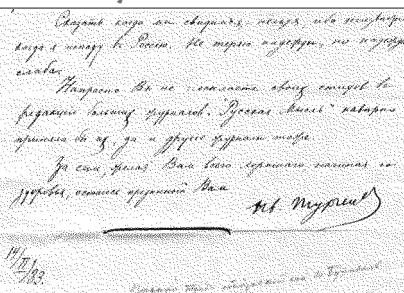 Сказать когда мы свидимся нельзя, ибо неизвестно
когда я попаду в Россию. Не теряю надежды, но надежда
слаба.
Напрасно Вы не посылаете своих стихов в
редакции больших журналов. "Русская Мысль" наверно
приняла бы их, да и другие журналы тоже.
За сим, желая Вам всего хорошего начиная со
здоровья, остаюсь преданный Вам
Ив. Тургенев